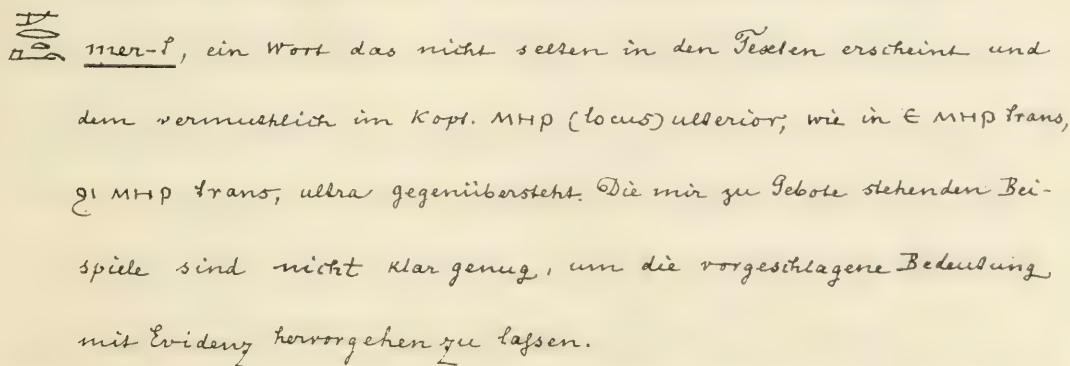 mer-t, ein Wort das nicht selten in den Texten erscheint und
dem vermuthlich im Kopt. ⲙⲏⲣ (locus) ulterior, wie in ⲉ ⲙⲏⲣ trans,
ϩⲓ ⲙⲏⲣ trans, ultra gegenübersteht. Die mir zu Gebote stehenden Bei-
spiele sind nicht klar genug, um die vorgeschlagene Bedeutung
mit Evidenz hervorgehen zu laſsen.